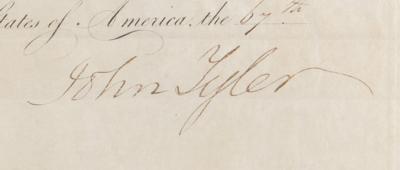 States of America, the 67th
John Tyler